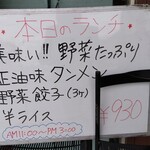 ・本日のランチ・
美味い!! 野菜たっぷり
正油味 タンメン
野菜餃子(3ヶ)
半ライス
¥930
AM11:00〜PM3:00